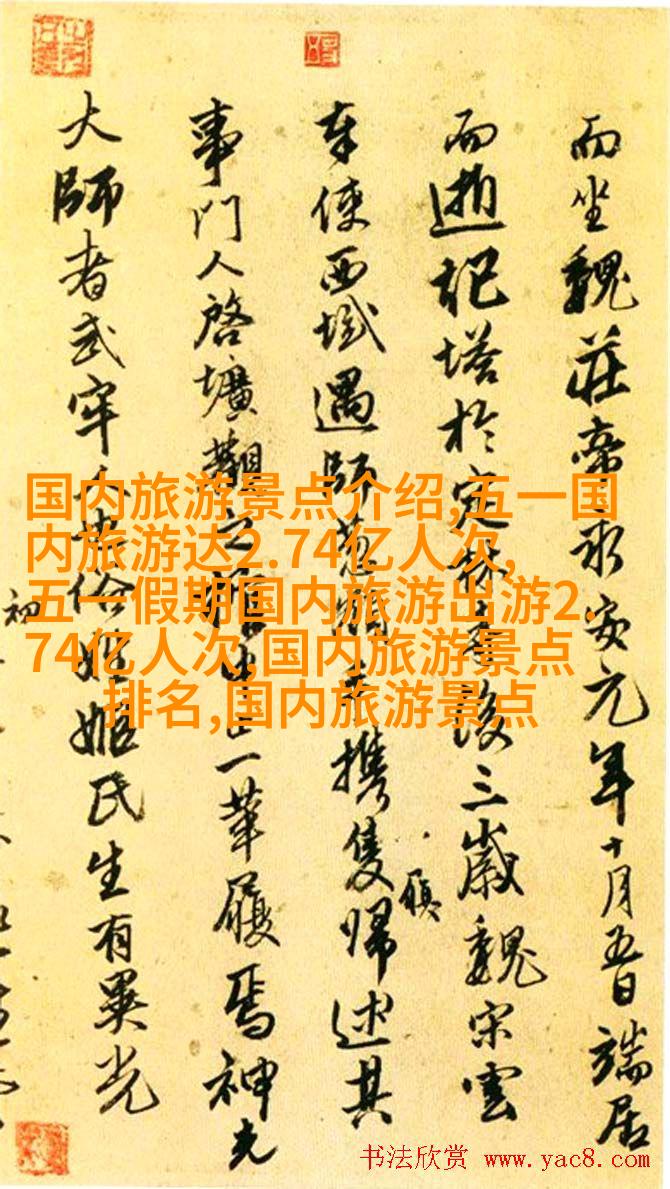 而坐魏莊帝永安元年十月五日端居
而逝祀塔於定林寺後三歲魏宋雲
奉使西域遇師葱嶺手攜隻歸述其
履
事門人啓壙觀之一革履焉神光
大師者武牢人世俗姓姬姬氏生有異光
初
国内旅游景点介绍,五一国
内旅游达2.74亿人次,
五一假期国内旅游出游2.
74亿人次,国内旅游景点
排名,国内旅游景点
书法欣赏 www.yac8.com